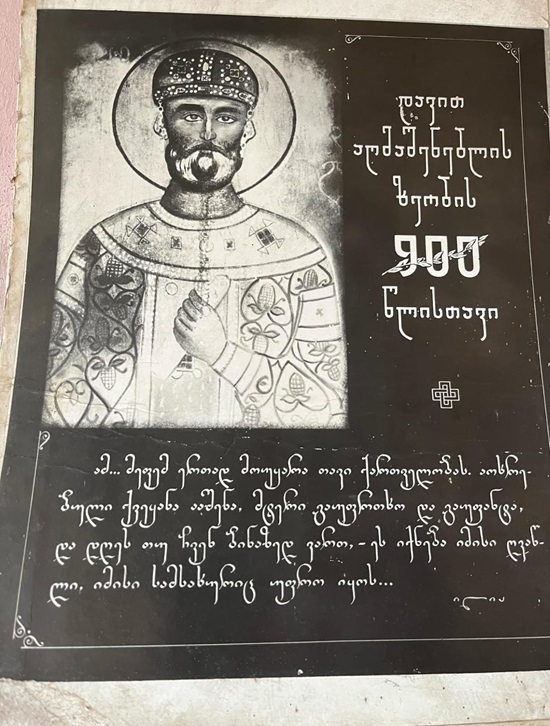 დავით
აღმაშენებლის
მეობის
900
წლისთავი
ამ... მეფემ ერთად მოუყარა თავი ქართველობას. აოხრე-
ბული ქვეყანა ააშენა, მტერი გაუფრთხო და გაუფანტა,
და დღეს თუ ჩვენ ბინაზედ ვართ, – ეს იქნება იმისი ღვაწ-
ლი, იმისი სამსახურიც უფრო იყოს...
ილია